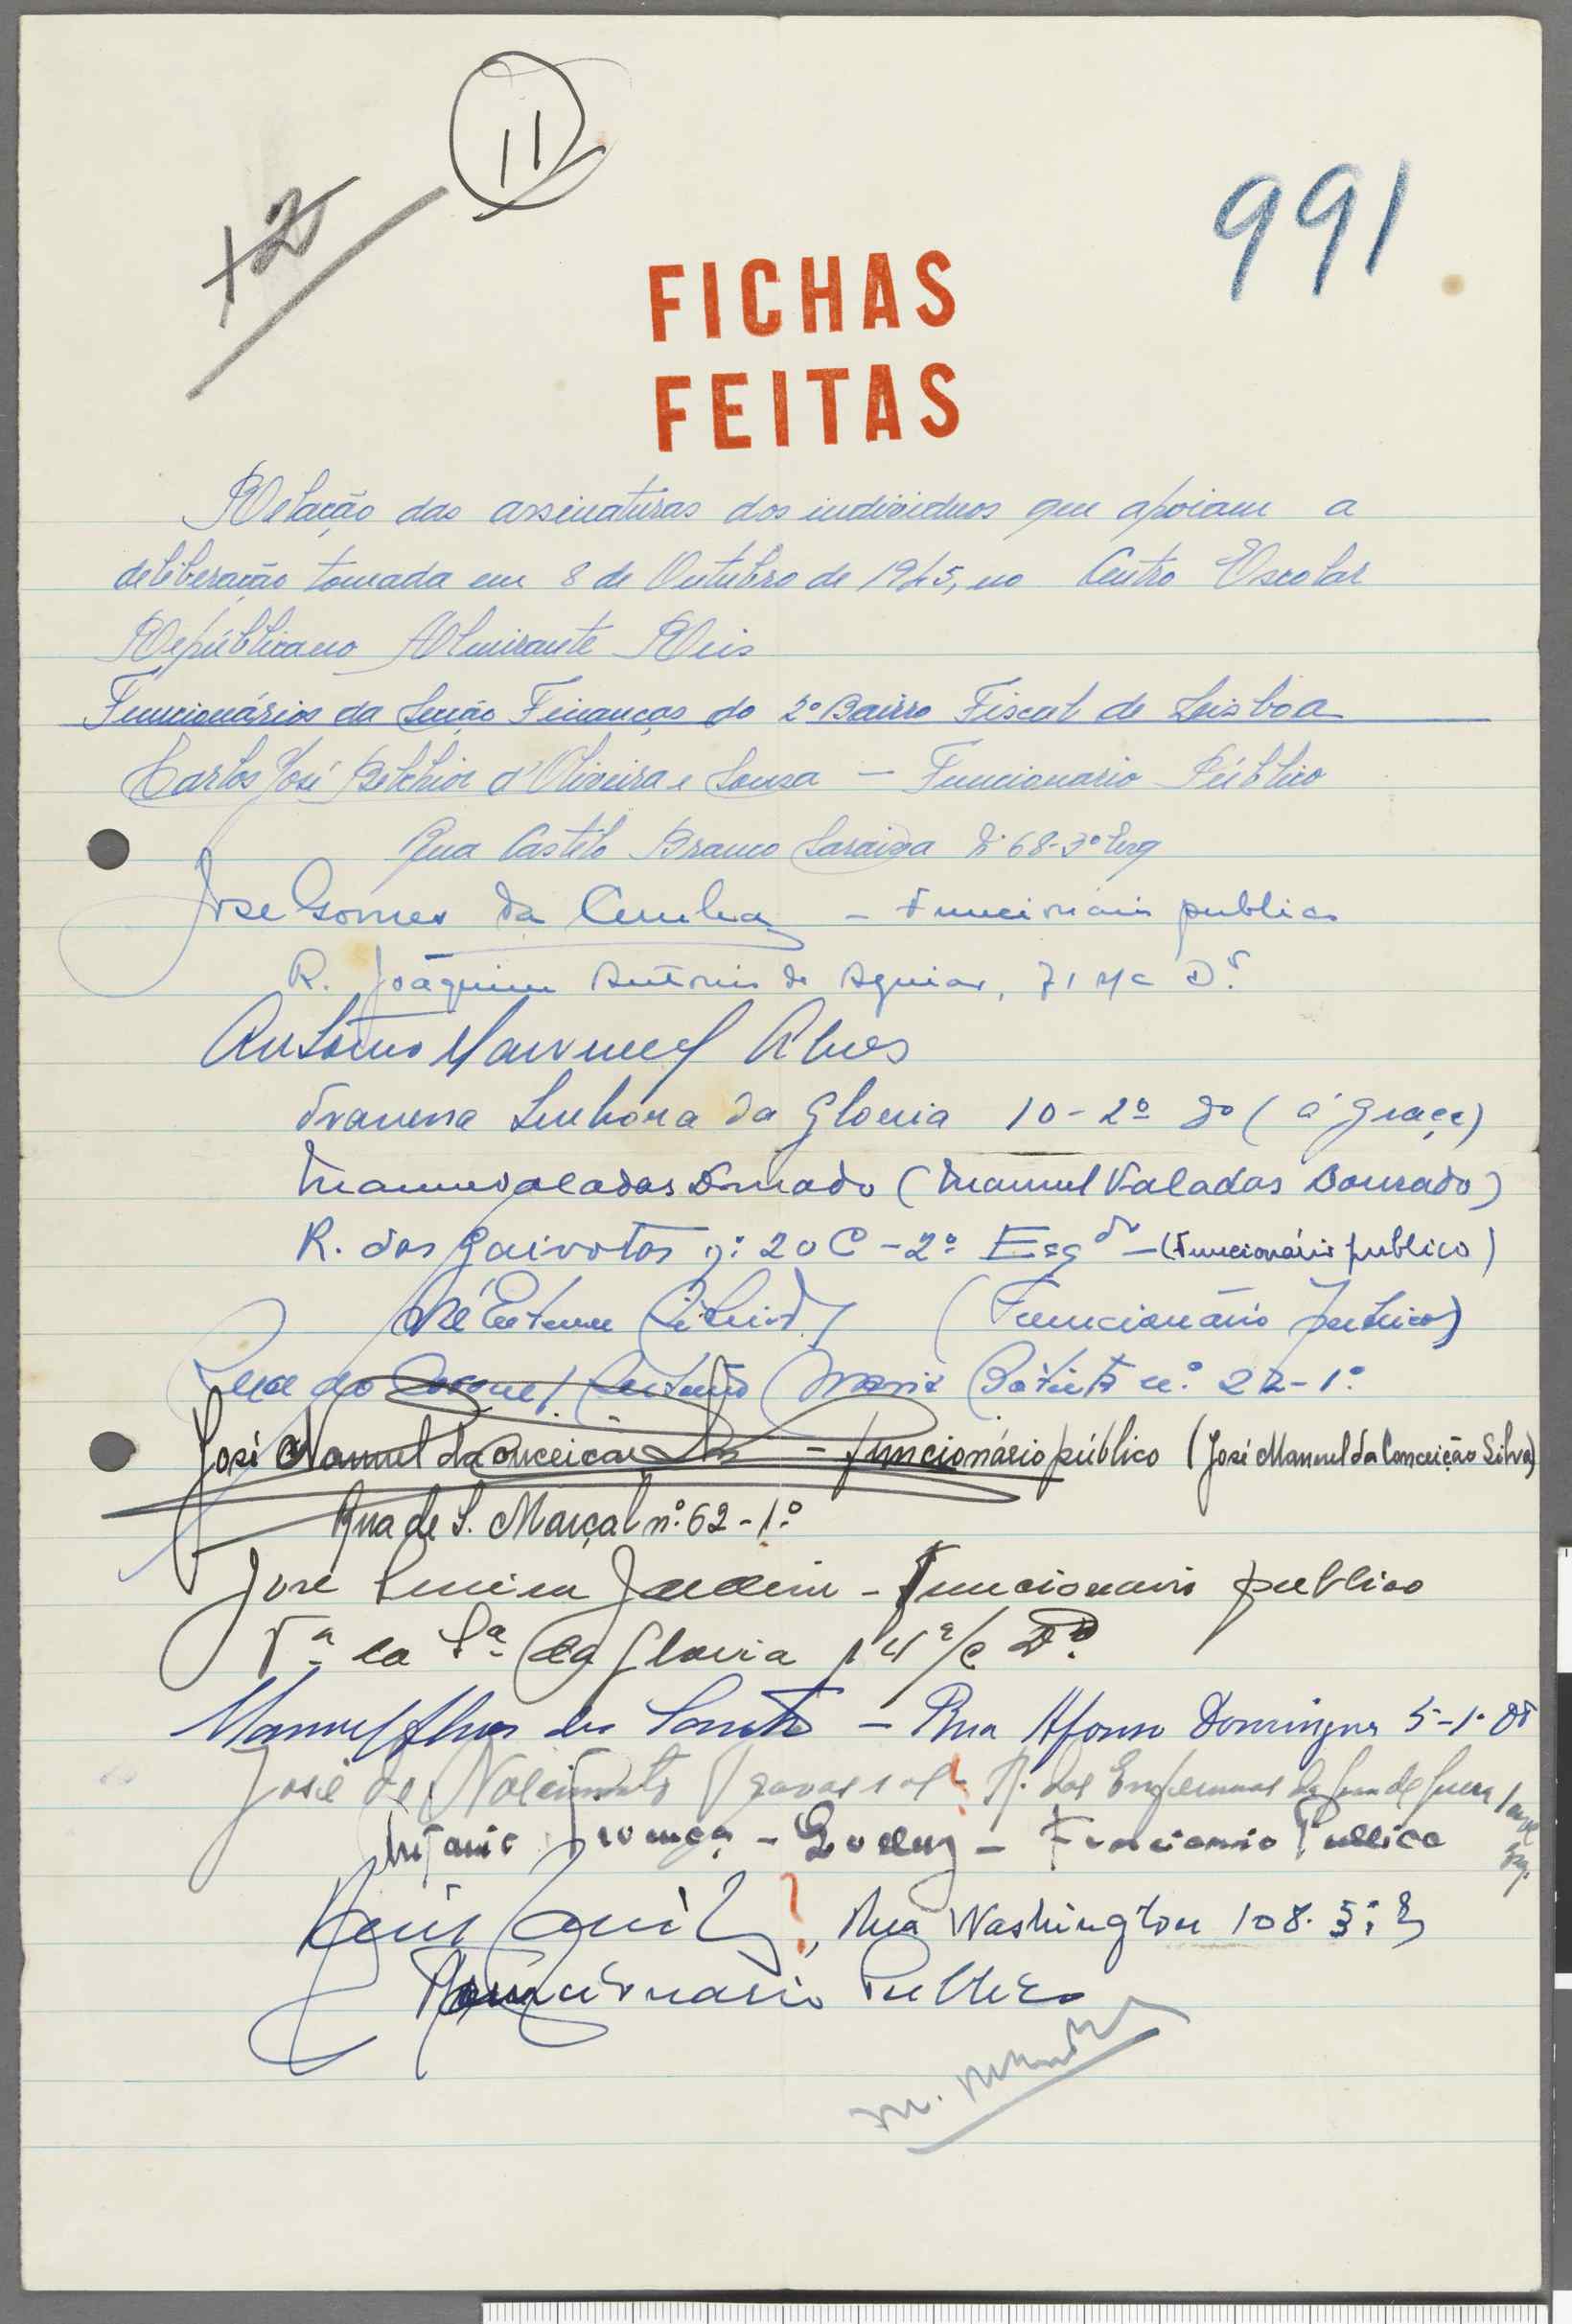 11
12
991
FICHAS
FEITAS
Relação das assinaturas dos individuos que apoiam a
deliberação tomada em 8 de Outubro de 1945, no Centro Escolar
Repúblicano Almirante Reis
Funcionários da Secção Finanças do 2º Bairro Fiscal de Lisboa
Carlos José Belchior d'Oliveira e Sousa - Funcionario Público
Rua Castelo Branco Saraiva Nº 68-3º Esq
Jose Gomes da Cunha - Funcionario publico
R. Joáquim Antonio de Aguiar, 71 r/c Dº
António Manuel Alves
Travessa Senhora da Gloria 10-2º dº (á Graça)
Manuel Valadas Dourado (Manuel Valadas Dourado)
R. das Gaivotas nº 20 C - 2º Esqdo - (Funcionário publico)
(Funcionário publico)
Rua do Coronel António Maria Batista nº 22-1º
José Manuel da Conceição Silva - funcionário público (José Manuel da Conceição Silva)
Rua de S. Marçal nº 62-1º
José Jardim - Funcionario publico
Tª da Sª da Gloria 14 r/c Dº
Manuel Alves dos Santos - Rua Afonso Domingues 5-1º Dº
José do Nascimento
Antonio - Queluz - Funcionario Publico
, Rua Washington 108-3º E
Funcionario Publico